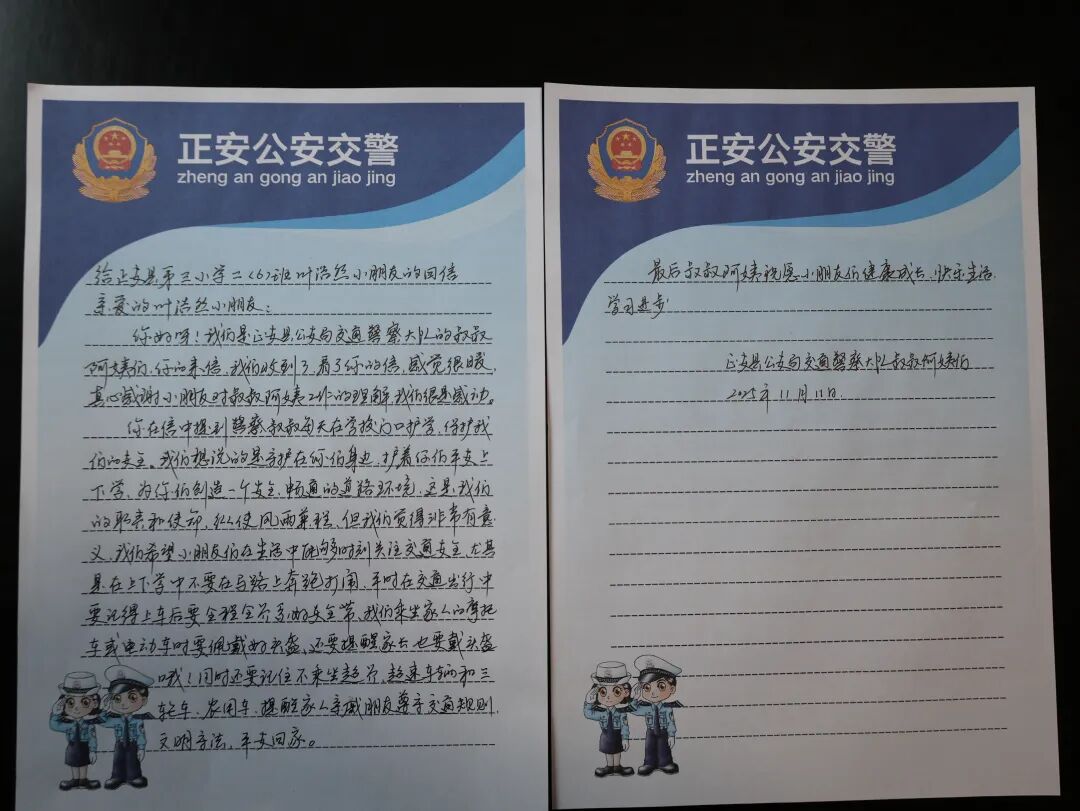 正安公安交警
zheng an gong an jiao jing
给正安县第三小学二〈6〉班叶浩然小朋友的回信
亲爱的叶浩然小朋友：
你好呀！我们是正安县公安局交通警察大队的叔叔
阿姨们，你的来信，我们收到了，看了你的信，感觉很暖，
真心感谢小朋友对叔叔阿姨工作的理解，我们很是感动。
你在信中提到警察叔叔每天在学校门口护学，保护我
们的安全。我们想说的是守护在你们身边，护着你们平安上
下学，为你们创造一个安全、畅通的道路环境，这是我们
的职责和使命，纵使风雨兼程，但我们觉得非常有意
义，我们希望小朋友们在生活中能够时刻关注交通安全，尤其
是在上下学中不要在马路上奔跑打闹，平时在交通出行中
要记得上车后要全程全员系好安全带，我们乘坐家人的摩托
车或电动车时要佩戴好头盔，还要提醒家长也要戴头盔
哦！同时还要记住不乘坐超员、超速车辆和三
轮车、农用车，提醒家人亲戚朋友尊守交通规则，
文明守法，平安回家。
正安公安交警
zheng an gong an jiao jing
最后叔叔阿姨祝愿小朋友们健康成长，快乐生活，
学习进步
正安县公安局交通警察大队叔叔阿姨们
2025年11月11日.